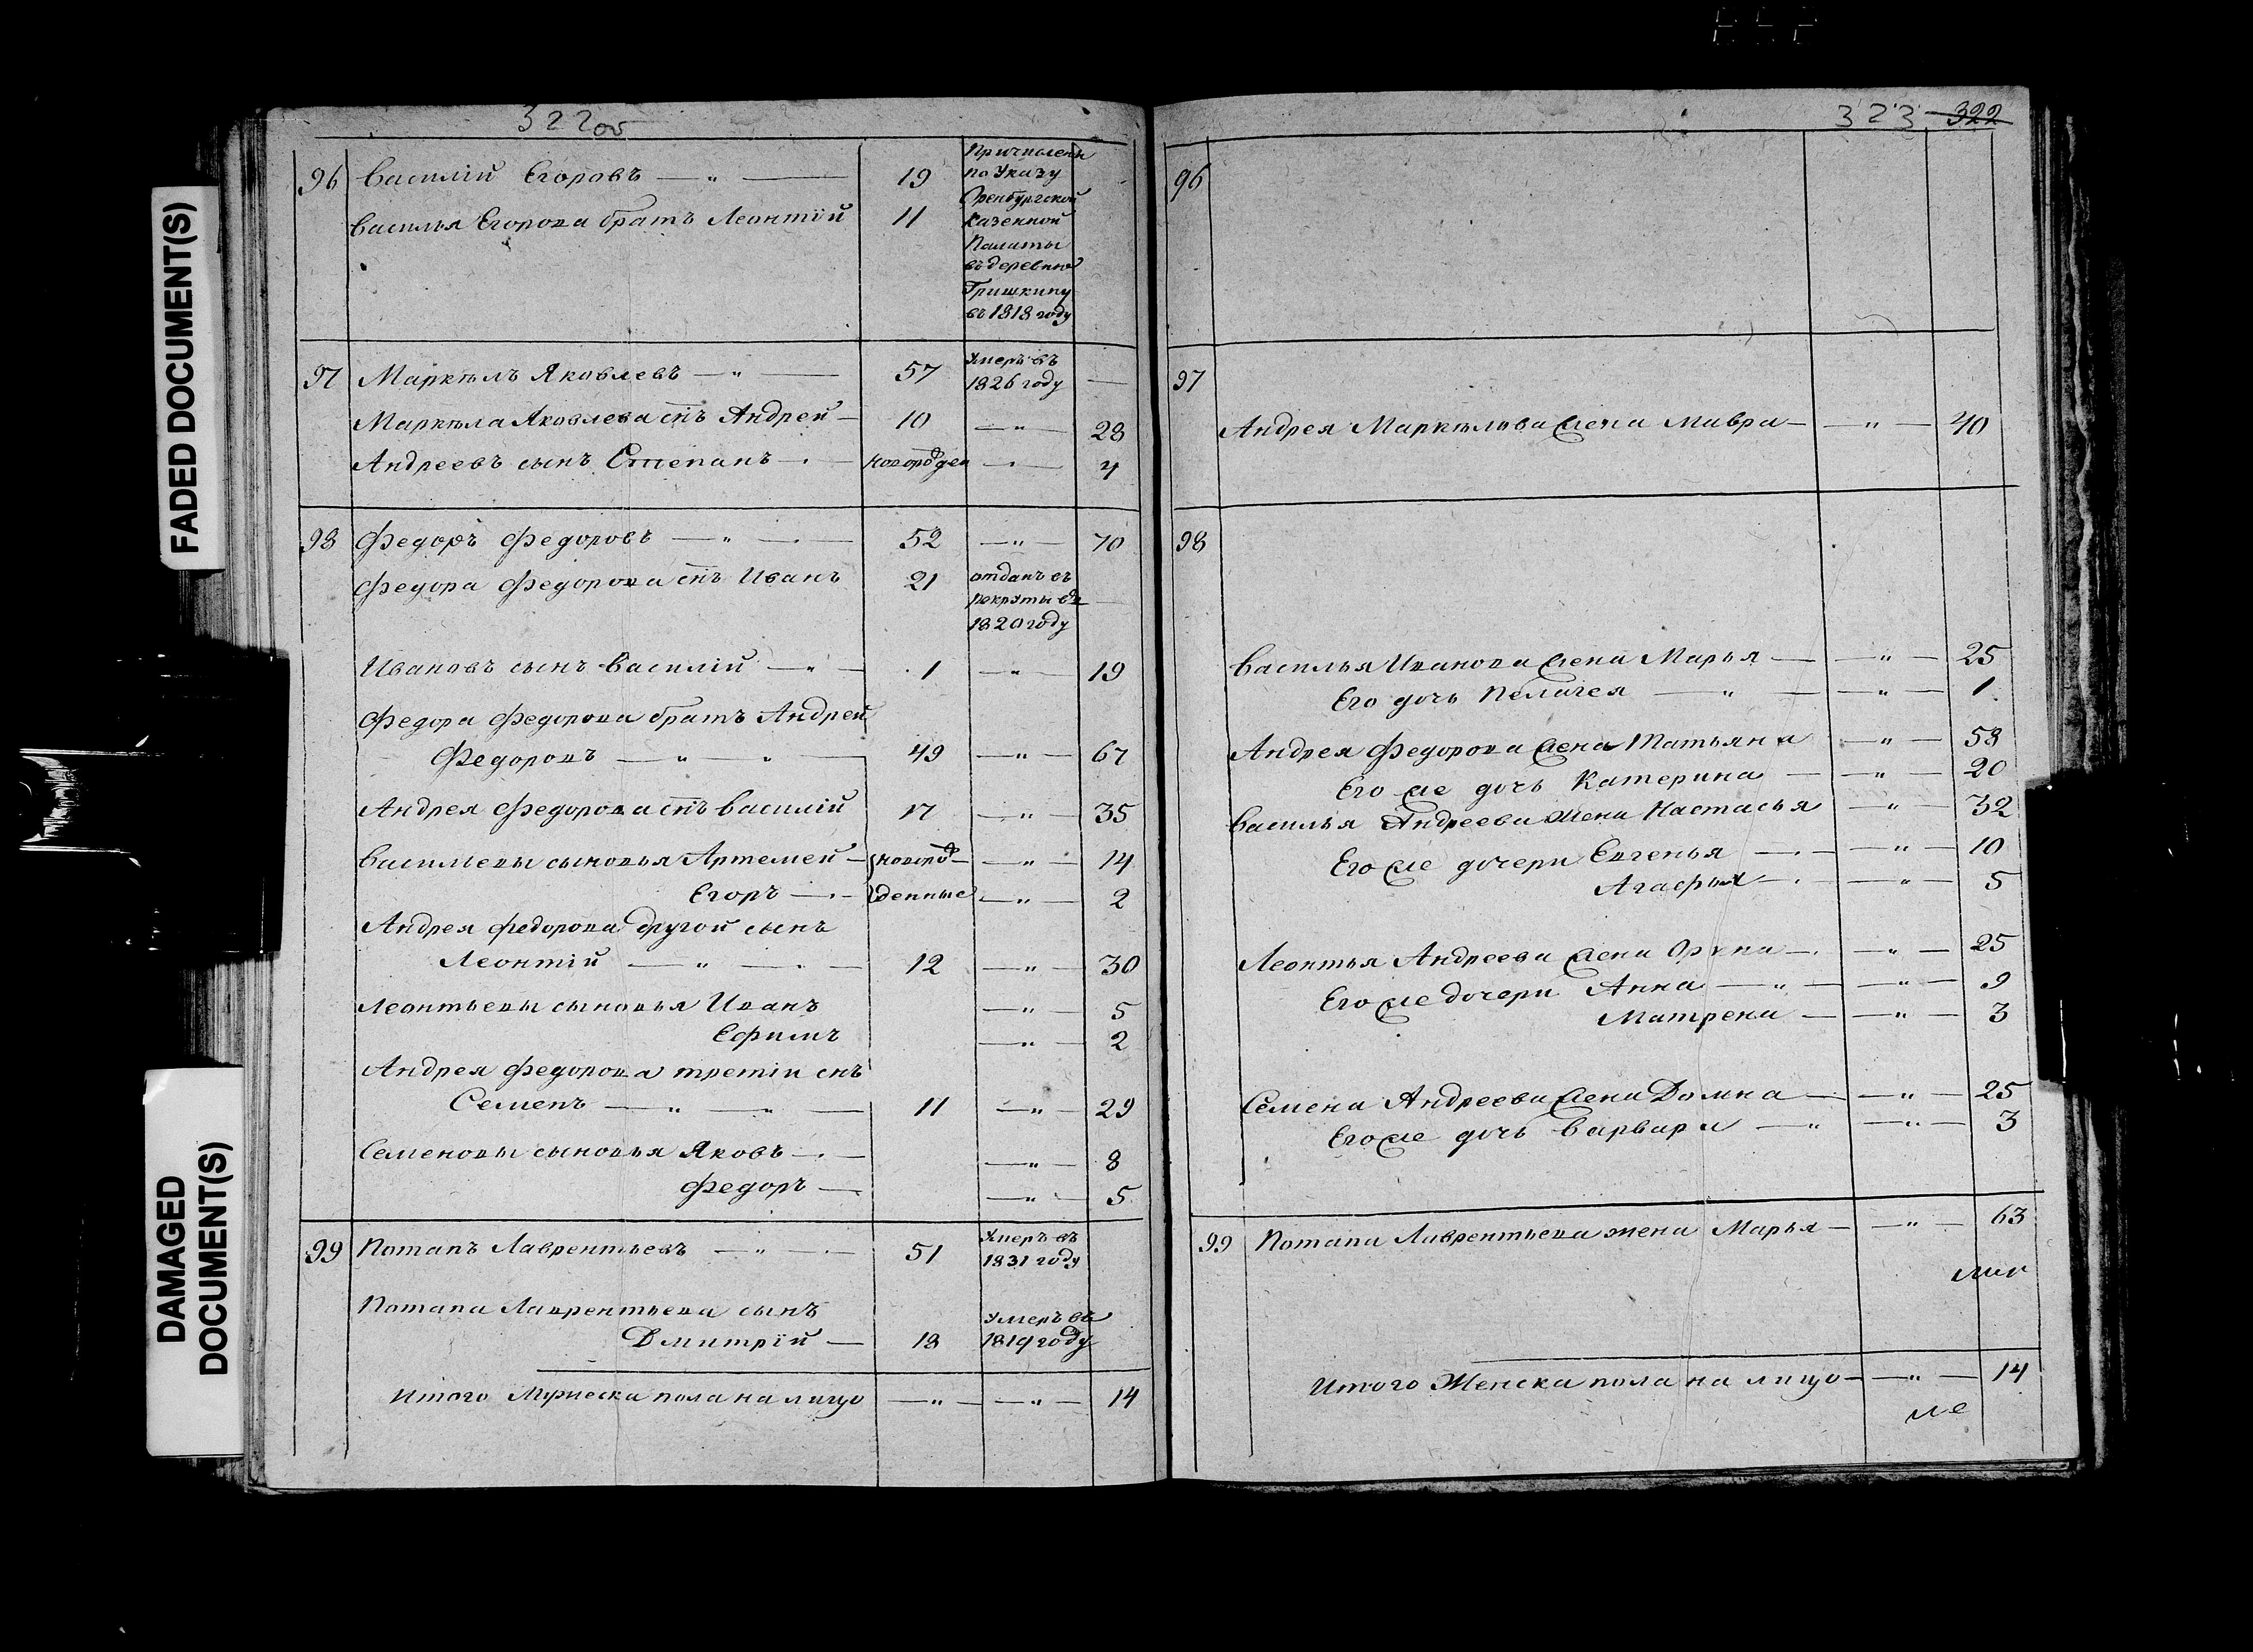 FADED DOCUMENT(S)
DAMAGED
DOCUMENT(S)
322об
96 Василій Егоровъ — „ — 19 Причислены
по Указу
Оренбургской
Казенной
Палаты
въ деревню
Гришкину
въ 1818 году
Василья Егорова братъ Леонтій 11
97 Маркѣлъ Яковлевъ — „ — 57 Умеръ въ
1826 году —
Маркѣла Яковлева снъ Андрей — 10 — „ — 28
Андреевъ сынъ Степанъ — новорожден — 4
98 Федоръ Федоровъ — „ — 52 — „ — 70
Федора Федорова снъ Иванъ 21 отданъ въ
рекруты въ
1820 году —
Ивановъ сынъ Василій — „ — 1 — „ — 19
Федора Федорова братъ Андрей
Федоровъ — „ — „ — 49 — „ — 67
Андрея Федорова снъ Василій 17 — „ — 35
Васильевы сыновья Артемей — новорож- — „ — 14
Егоръ — денные — „ — 2
Андрея Федорова другой сынъ
Леонтій — „ — 12 — „ — 30
Леонтьевы сыновья Иванъ — „ — 5
Ефимъ — „ — 2
Андрея Федорова третій снъ
Семенъ — „ — „ — 11 — „ — 29
Семеновы сыновья Яковъ — — „ — 8
Федоръ — — „ — 5
99 Потапъ Лаврентьевъ — „ — 51 Умеръ въ
1831 году
Потапа Лаврентьева сынъ
Дмитрій — 18 Умеръ въ
1819 году
Итого Мужеска пола на лицо — „ — — „ — 14
323 322
96
97
Андрея Маркѣлова жена Мавра — — „ — 40
98
Василья Иванова жена Марья — — „ — 25
Его дочь Пелагея — „ — — „ — 1
Андрея Федорова жена Татьяна — „ — 58
Его же дочь Катерина — — „ — 20
Василья Андреева жена Настасья — „ — 32
Его же дочери Евгенья — — „ — 10
Агафья — — „ — 5
Леонтья Андреева жена Орина — — „ — 25
Его же дочери Анна — „ — — „ — 9
Матрена — — „ — 3
Семена Андреева жена Домна — — „ — 25
Его же дочь Варвара — „ — „ — 3
99 Потапа Лаврентьева жена Марья — — „ — 63
Итого Женска пола на лицо — — „ — 14